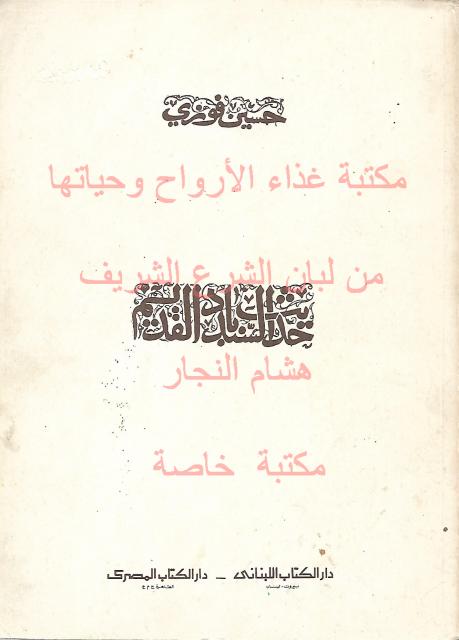 حسين فوزي
مكتبة غذاء الأرواح وحياتها
من لبان الشرع الشريف
حديث السندباد القديم
هشام النجار
مكتبة خاصة
دار الكتاب اللبنانى - دار الكتاب المصرى
بيروت - لبنان القاهرة ج م ع